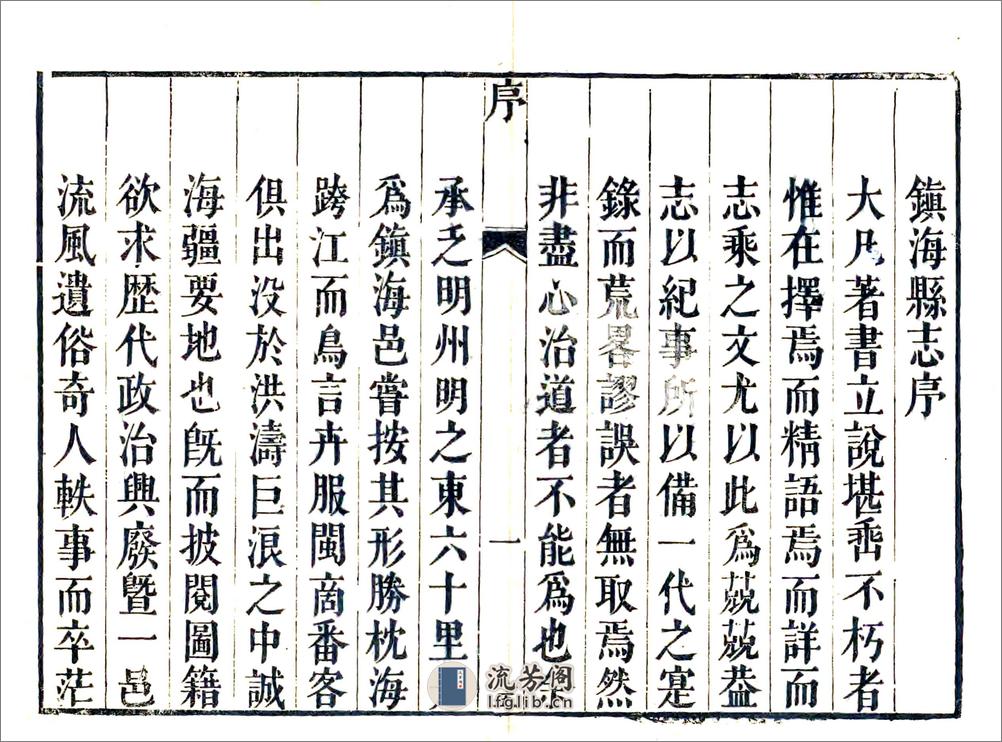 鎮海縣志序
大凡著書立說堪垂不朽者
惟在擇焉而精語焉而詳而
志乘之文尤以此爲兢兢葢
志以紀事所以備一代之寔
錄而荒畧謬誤者無取焉然
非盡心治道者不能爲也余
序
一
承乏明州明之東六十里
爲鎮海邑嘗按其形勝枕海
跨江而鳥言卉服閩商番客
俱出没於洪濤巨浪之中誠
海疆要地也旣而披閱圖籍
欲求歷代政治興廢曁一邑
流風遺俗奇人軼事而卒茫
流芳阁
lfglib.cn